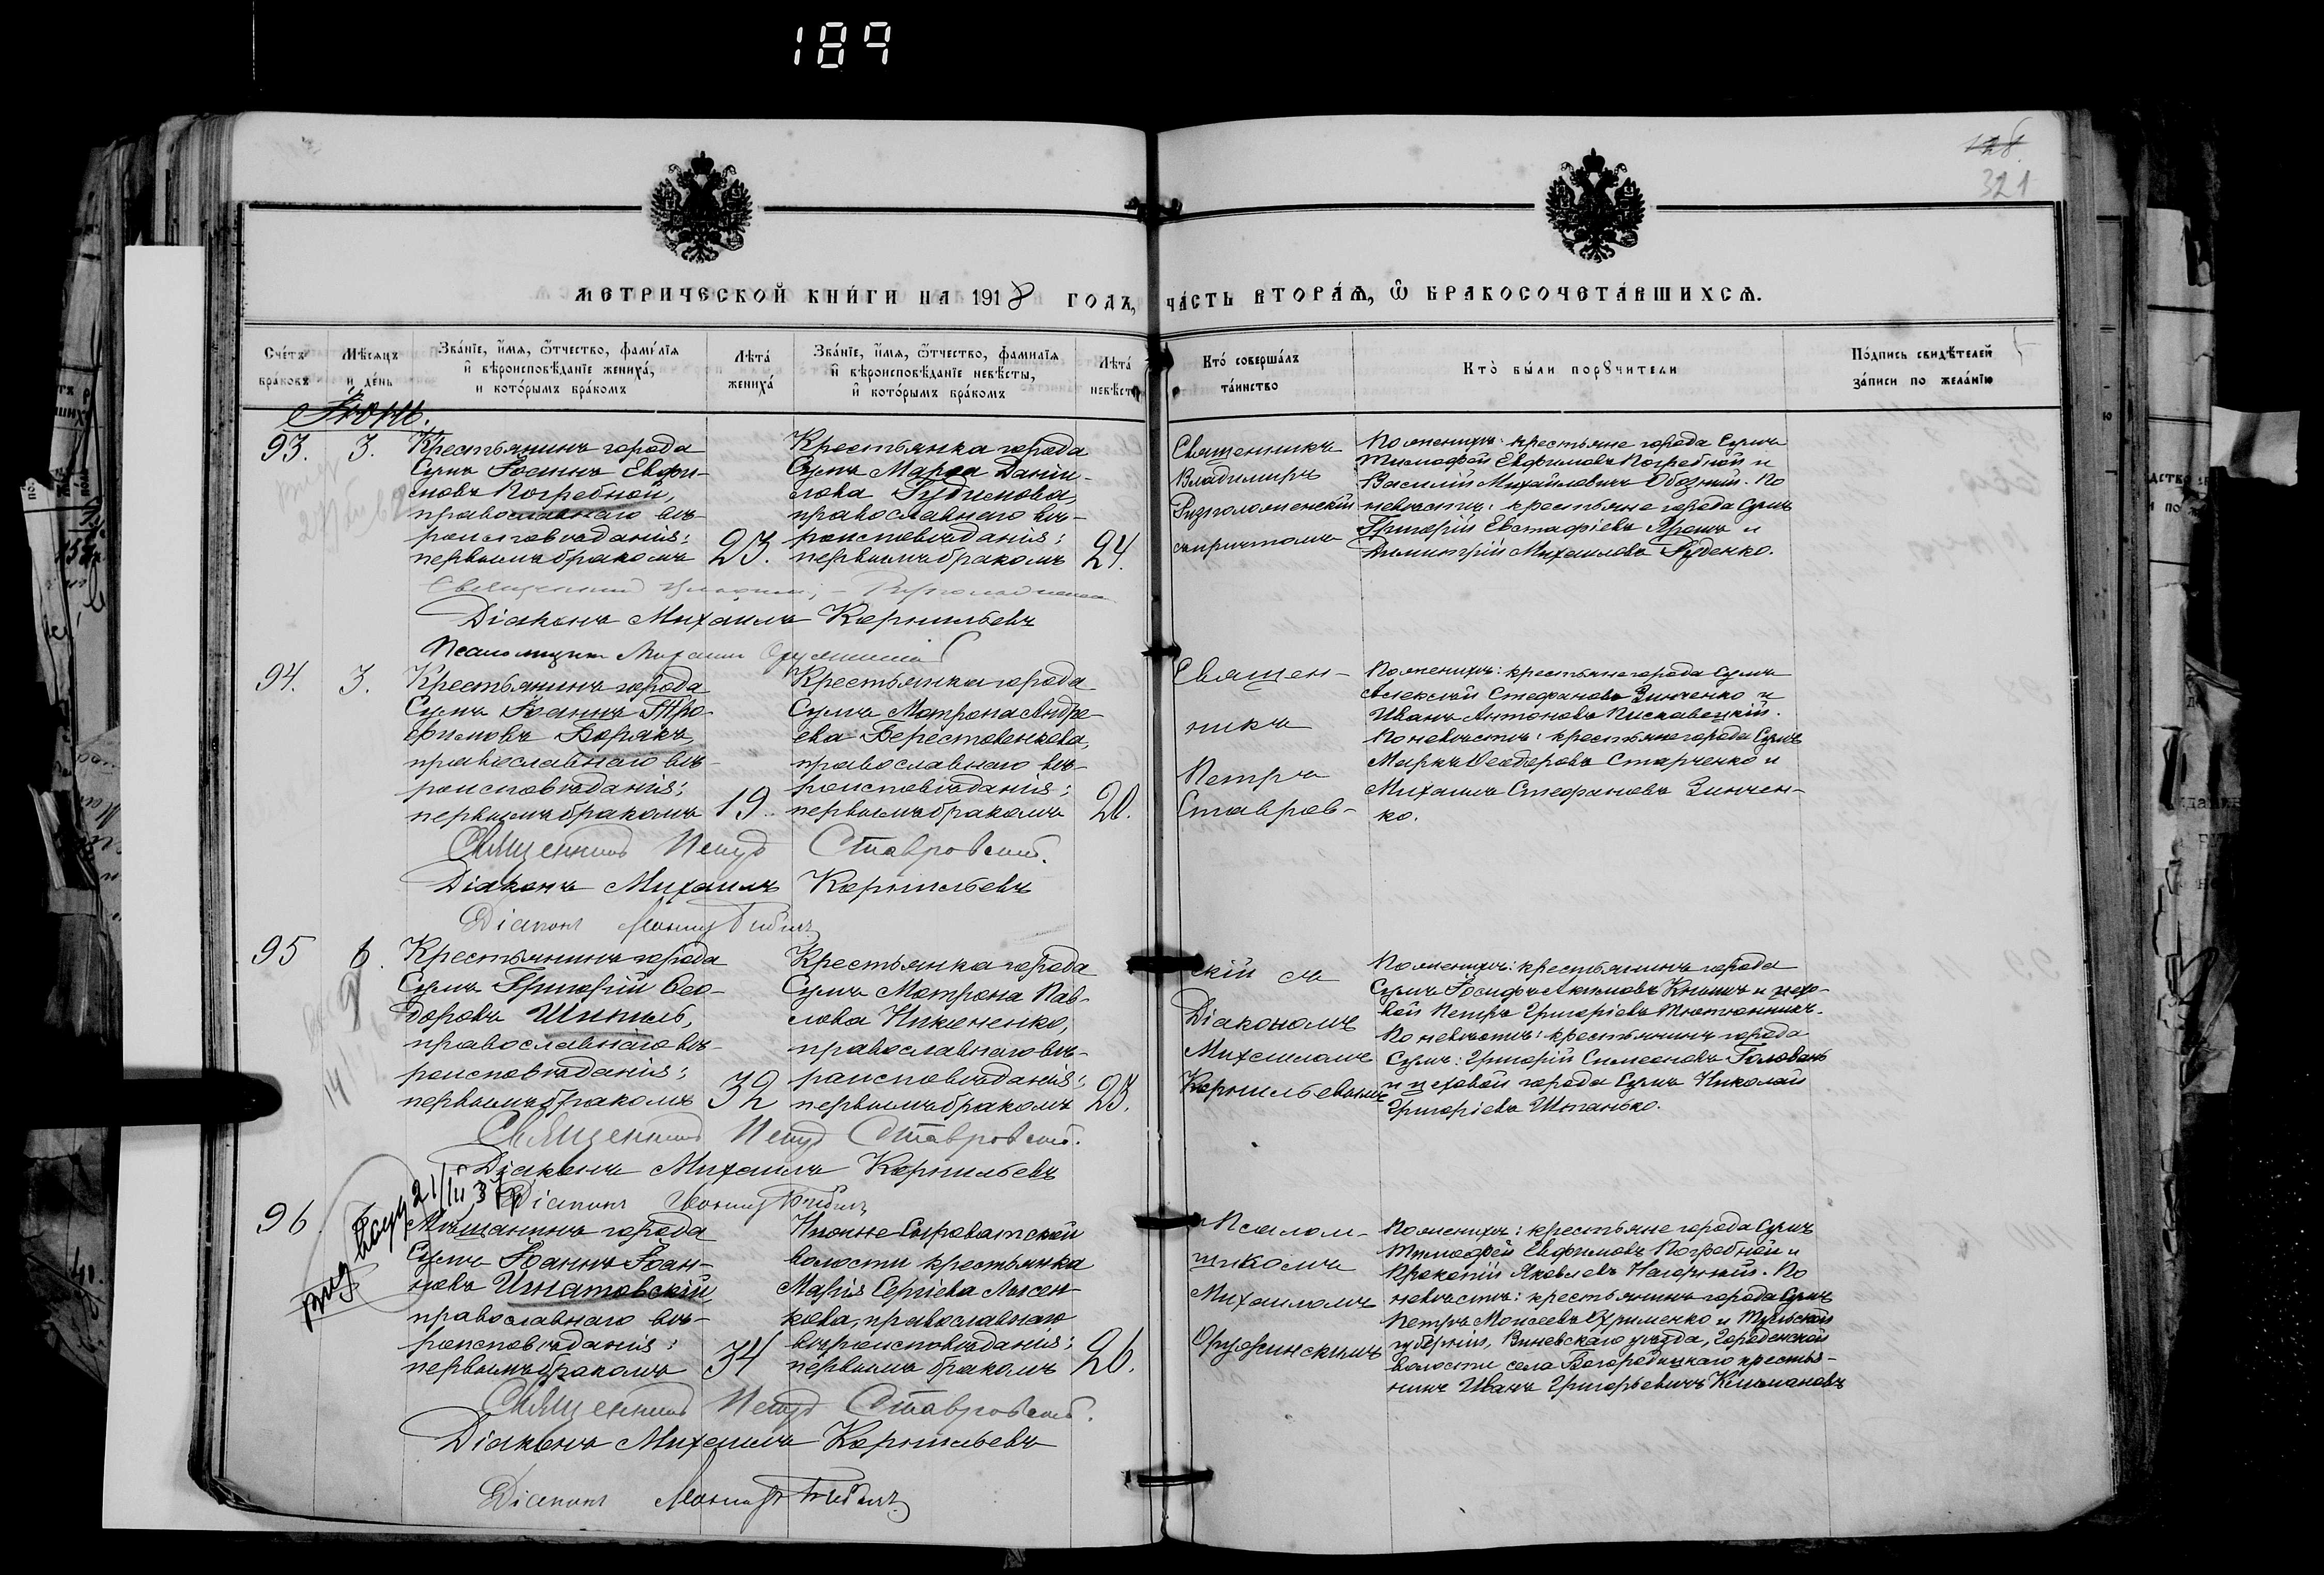 189
128.
321
МЕТРИЧЕСКОЙ КНИ́ГИ НА 1918 ГОДЪ, ЧА́СТЬ ВТОРА́Ѧ, Ѽ БРАКОСОЧЕТА́ВШИХСѦ.
Сче́тъ бра́ковъ
Мѣ́сѧцъ и де́нь
Зва́нїе, и́мѧ, ѻ҆́тчество, фами́лїѧ и҆ вѣроисповѣ́данїе жениха́, и кото́рымъ бра́комъ
Лѣта́ жениха́
Зва́нїе, и́мѧ, ѻ҆́тчество, фамилїѧ и҆ вѣроисповѣ́данїе невѣ́сты, и҆ кото́рымъ бра́комъ
Лѣта́ невѣст
Кто́ соверша́лъ та́инство
Кто̀ бы́ли порꙋчители
По́дпись свидѣ́телей за́писи по жела́нїю
Іюнь.
93.
3.
Крестьянинъ города
Сумъ Іоаннъ Евфи-
мовъ Погребной,
православнаго вѣ-
роисповѣданія;
первымъ бракомъ
23.
Крестьянка города
Сумъ Марѳа Даніи-
лова Рудимова,
православнаго вѣ-
роисповѣданія;
первымъ бракомъ
24.
Священникъ
Владимиръ
Ризположенскій
съ причтомъ
По женихѣ: крестьяне города Сумъ
Тимофей Евфимовъ Погребной и
Василій Михайловичъ Обозный. По
невѣстѣ: крестьяне города Сумъ
Григорій Евстафіевъ Ярошъ и
Димитрій Михаиловъ Руденко.
Діаконъ Михаилъ Корнильевъ
Псаломщикъ Михаилъ
94.
3.
Крестьянинъ города
Сумъ Іоаннъ Тро-
фимовъ Борякъ,
православнаго вѣ-
роисповѣданія;
первымъ бракомъ
19.
Крестьянка города
Сумъ Матрона Андре-
ева Берестовенкова,
православнаго вѣ-
роисповѣданія;
первымъ бракомъ
20.
Священ-
никъ
Петръ
Ставров-
По женихѣ: крестьяне города Сумъ
Алексѣй Стефановъ Зинченко и
Иванъ Антоновъ Пискавецкій.
По невѣстѣ: крестьяне города Сумъ
Маркъ Ѳеодоровъ Старченко и
Михаилъ Стефановъ Зинчен-
ко.
Священникъ Петръ Ставровскій.
Діаконъ Михаилъ Корнильевъ
Діаконъ
95
6.
Крестьянинъ города
Сумъ Григорій Ѳео-
доровъ Шпиль,
православнаго вѣ-
роисповѣданія;
первымъ бракомъ
32
Крестьянка города
Сумъ Матрона Пав-
лова Никоненко,
православнаго вѣ-
роисповѣданія;
первымъ бракомъ
23.
скій съ
Діакономъ
Михаиломъ
Корнильевымъ
По женихѣ: крестьянинъ города
Сумъ Іосифъ Акимовъ Книшъ и цехо-
вой Петръ Григоріевъ Тютюнникъ.
По невѣстѣ: крестьянинъ города
Сумъ: Григорій Симеоновъ Головань
и цеховой города Сумъ Николай
Григоріевъ Штанько.
Священникъ Петръ Ставровскій.
Діаконъ Михаилъ Корнильевъ
Діаконъ
96.
7.
Мѣщанинъ города
Сумъ Іоаннъ Іоан-
новъ Игнатовскій,
православнаго вѣ-
роисповѣданія;
первымъ бракомъ
34
Нижне Сыроватской
волости крестьянка
Марія Сергіева Лысен-
кова, православнаго
вѣроисповѣданія;
первымъ бракомъ
26.
Псалом-
щикомъ
Михаиломъ
Оружинскимъ
По женихѣ: крестьяне города Сумъ
Тимофей Евфимовъ Погребной и
Прокопій Яковлевъ Нагорный. По
невѣстѣ: крестьянинъ города Сумъ
Петръ Моисеевъ Охрименко и Тульской
губерніи, Веневскаго уѣзда, Городенской
волости села Богородицкаго крестья-
нинъ Иванъ Григорьевичъ Кельмановъ
Священникъ Петръ Ставровскій.
Діаконъ Михаилъ Корнильевъ
Діаконъ